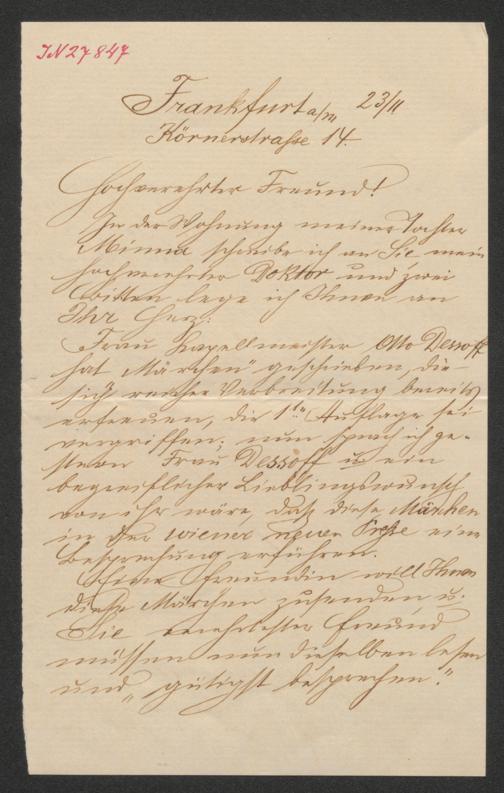 IN 27847
Frankfurt a/m 23/11
Körnerstraße 14.
Hochverehrter Freund!
In der Wohnung meiner Tochter
Minna schreibe ich an Sie mein
hochverehrter Doktor und zwei
Bitten lege ich Ihnen an
Ihr Herz:
Frau Kapellmeister Otto Dessoff
hat „Märchen" geschrieben, die
sich reicher Verbreitung bereits
erfreuen, die 1te Auflage sei
vergriffen; nun sprach ich ge-
stern Frau Dessoff u ein
begreiflicher Lieblingswunsch
von ihr wäre, daß diese Märchen
in der wiener neuen Presse eine
Besprechung erführen.
Freundin will Ihnen
diese Märchen zusenden u.
Sie verehrtester Freund
müssen nun dieselben lesen
und „gütigst besprechen."